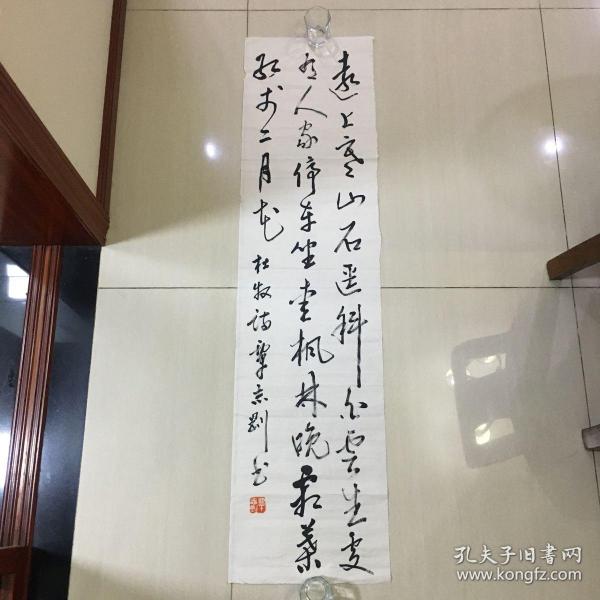 远上寒山石径斜白云生处
有人家停车坐爱枫林晚霜叶
红于二月花 杜牧诗 志刚书
孔夫子旧书网
www.kongfz.com